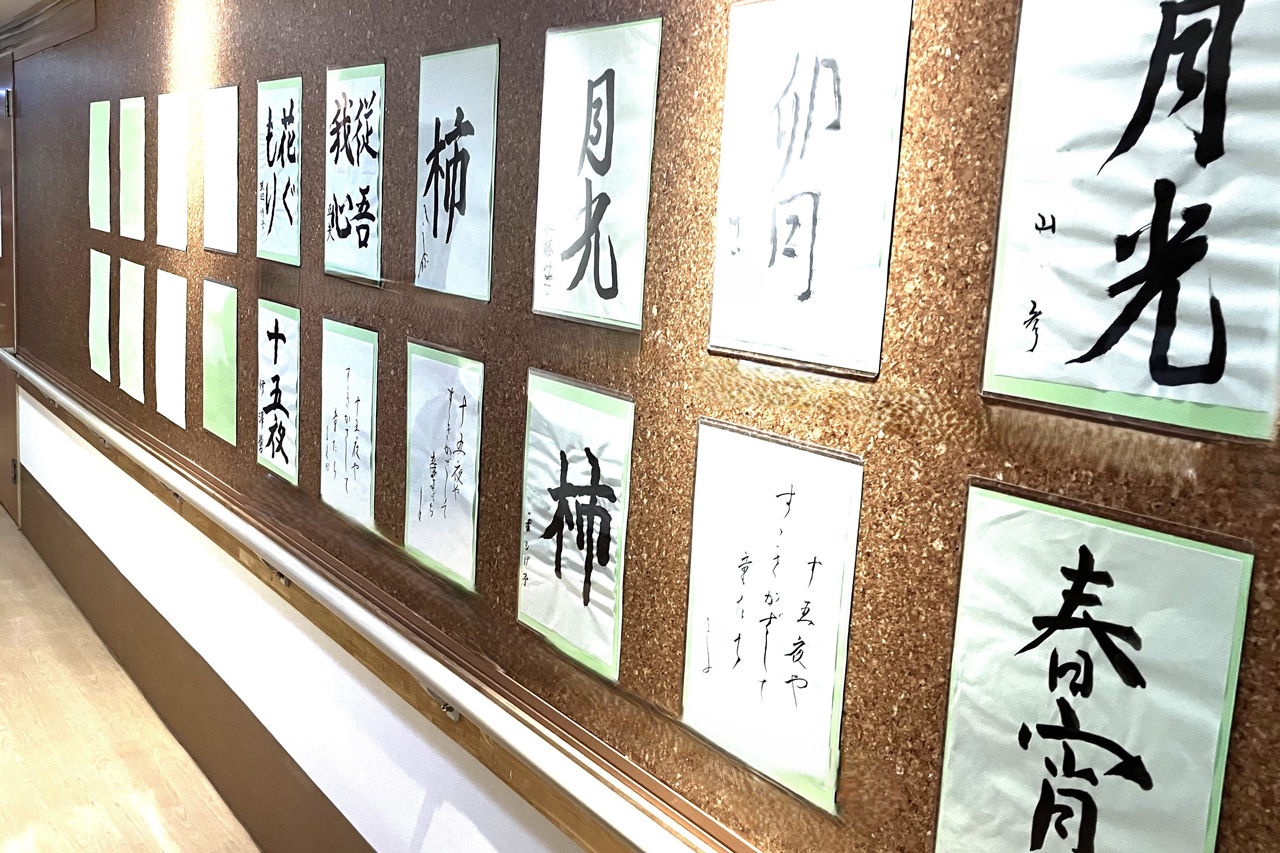 花ぐ
もり
従吾
我心
柿
月光
卯月
月光
山
彦
十五夜
十五夜や
すゝきかざして
童たち
十五夜や
すゝきかざして
童たち
柿
十五夜や
すゝきかざして
童たち
春宵